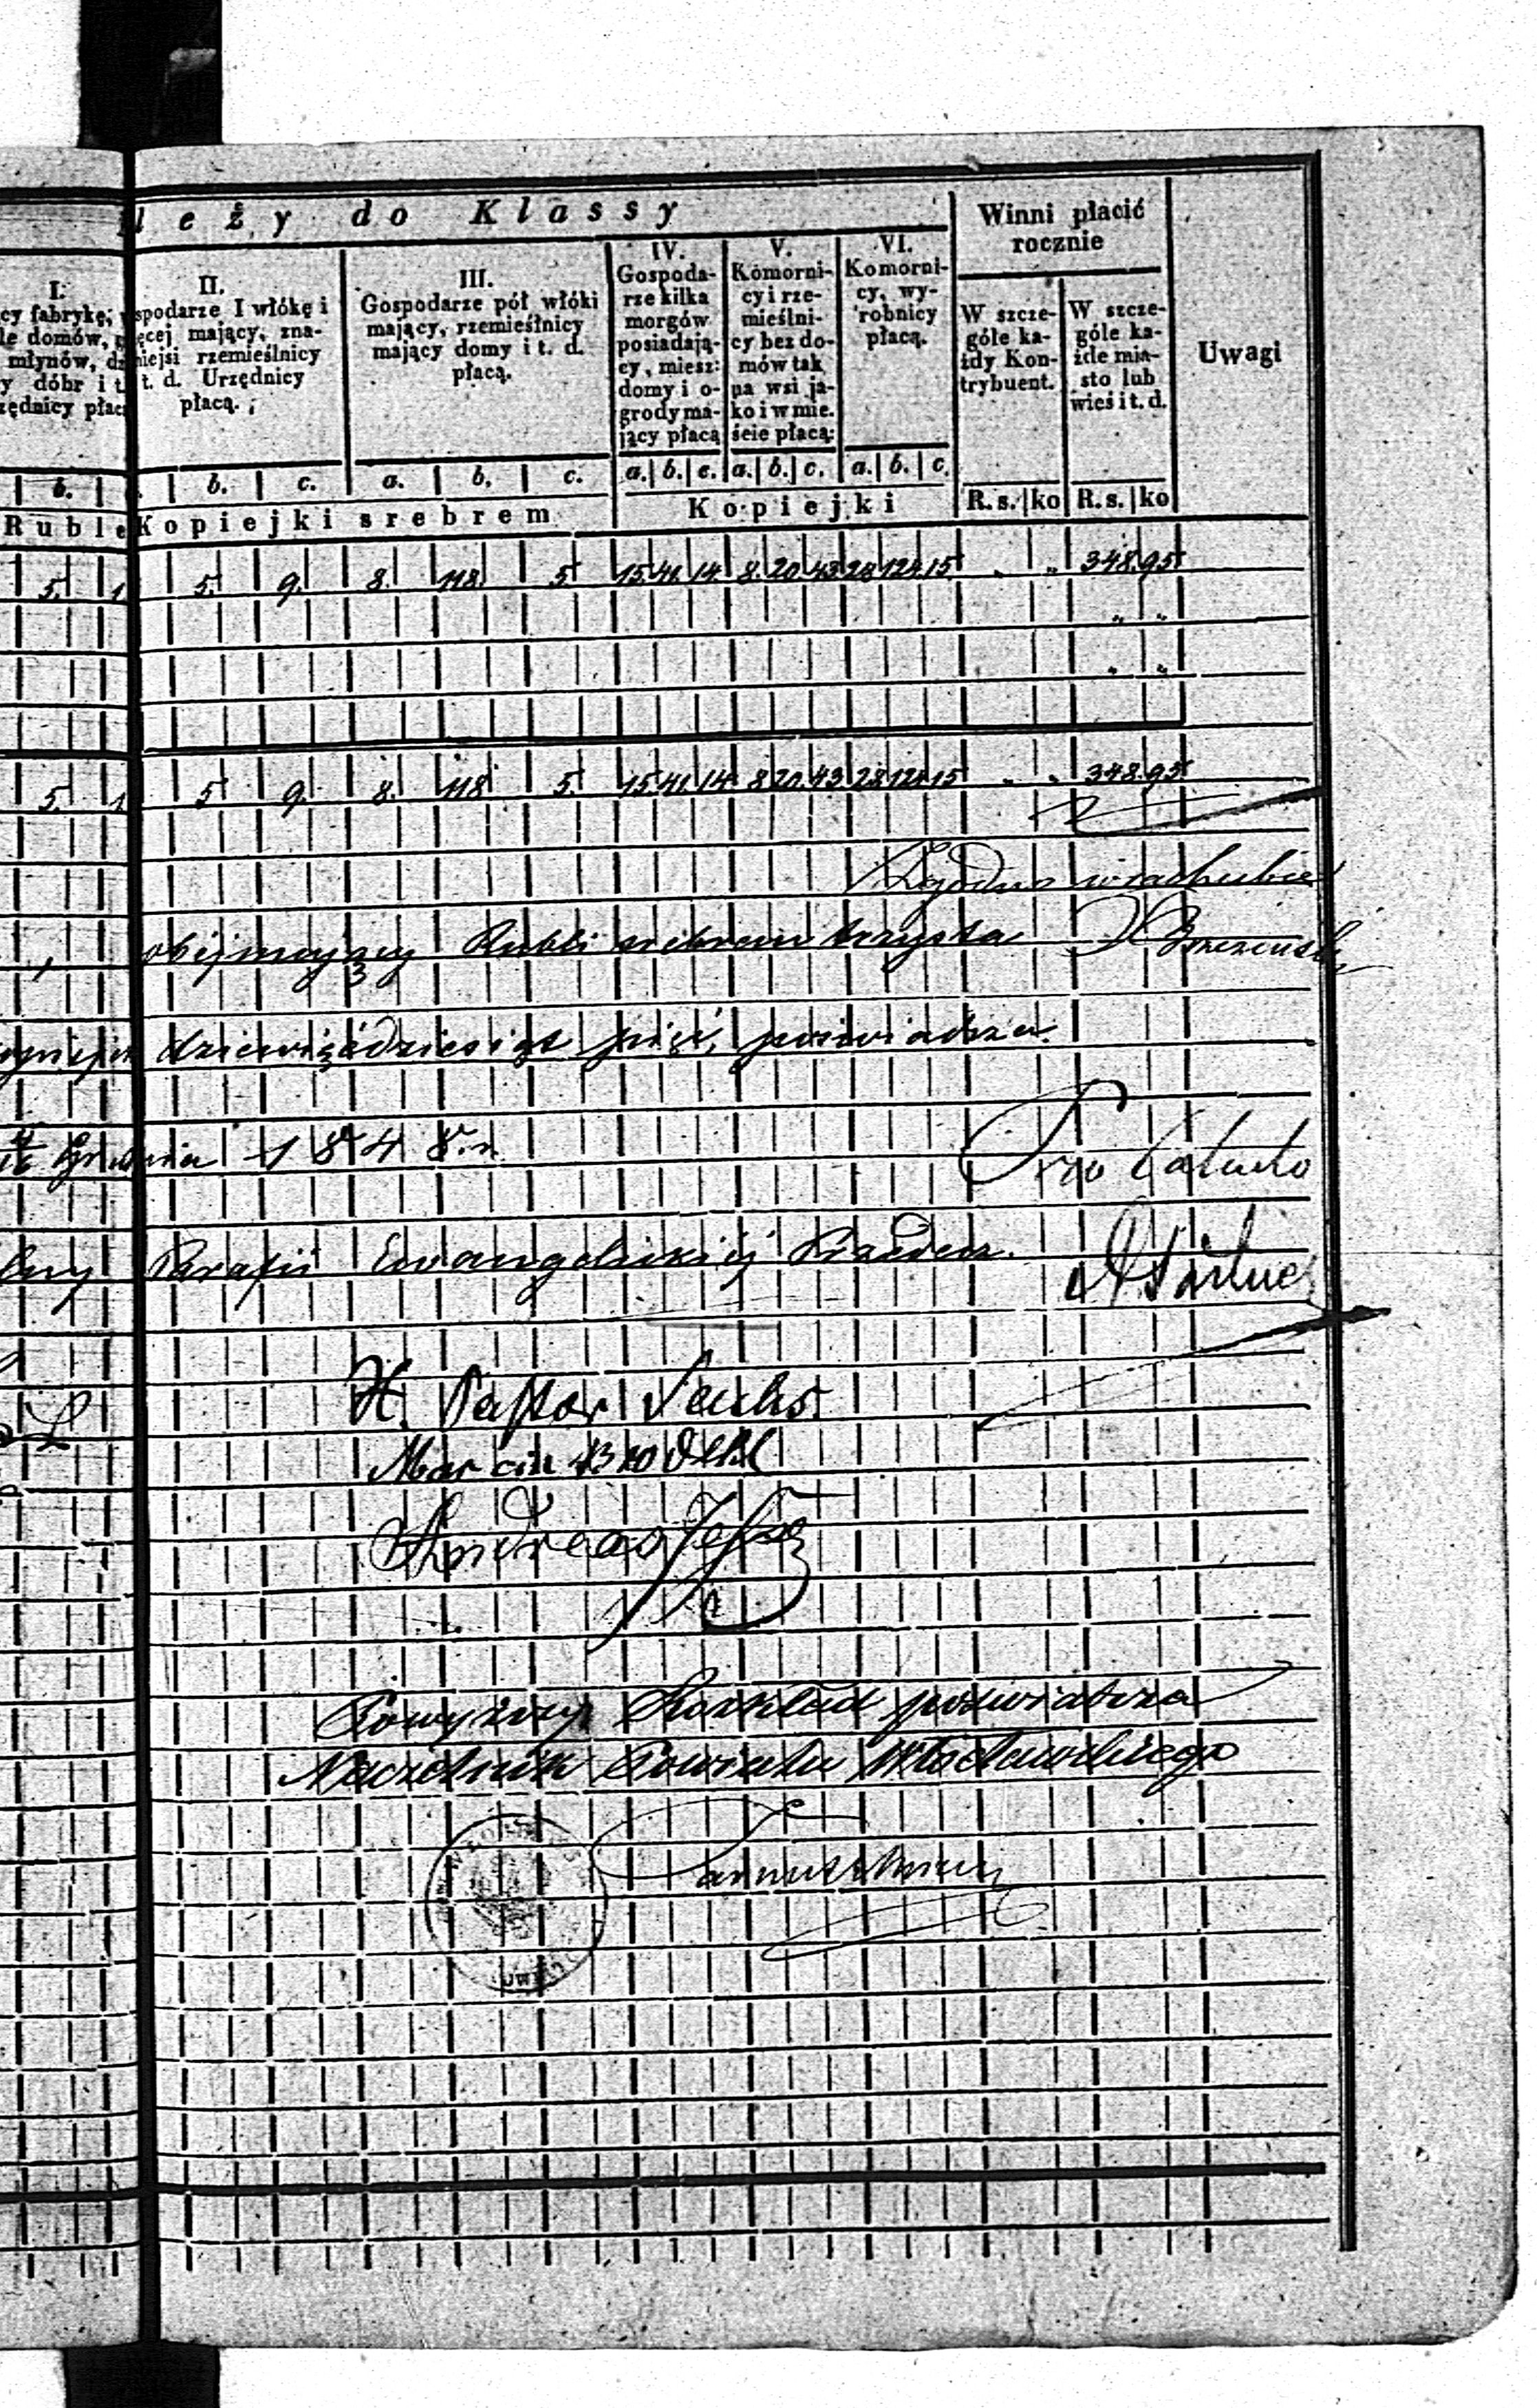 leży do Klassy
Winni płacić
rocznie
Uwagi
I.
cy fabrykę,
le domów,
młynów,
y dóbr i t
zędnicy płac
II.
spodarze I włókę i
ęcej mający, zna-
niejsi rzemieślnicy
t. d. Urzędnicy
płacą.
III.
Gospodarze pół włóki
mający, rzemieślnicy
mający domy i t. d.
płacą.
IV.
Gospoda-
rze kilka
morgów
posiadają-
cy, miesz:
domy i o-
grody ma-
jący płacą
V.
Komorni-
cy i rze-
mieślni-
cy bez do-
mów tak
na wsi ja-
ko i w mie.
ście płacą:
VI.
Komorni-
cy, wy-
robnicy
płacą.
W szcze-
góle ka-
żdy Kon-
trybuent.
W szcze-
góle ka-
żde mia-
sto lub
wieś i t. d.
b. b. c. a. b. c. a. b. c. a. b. c. a. b. c.
Ruble Kopiejki srebrem Kopiejki R. s. ko R. s. ko
5. 1 5. 9. 8. 118. 5 15. 41. 14. 8. 20. 43 28 124. 15 " " 348. 95
" "
" "
5. 1 5 9. 8. 118 5 15. 41. 14 8 20. 43 28 124 15 " " 348. 95
Zgodno w rachubie
obejmujący Rubli srebrem trzysta Brzezinski
dziewięćdziesiąt pięć, poświadcza.
Grudnia 1848 r.
Pro Calculo
Parafii Ewangelickiéj Przedecz.
H. Pastor Sachs.
Marcin
Andreas Jeske
Powyższy Rozkład poświadcza
Naczelnik Powiatu Włocławskiego